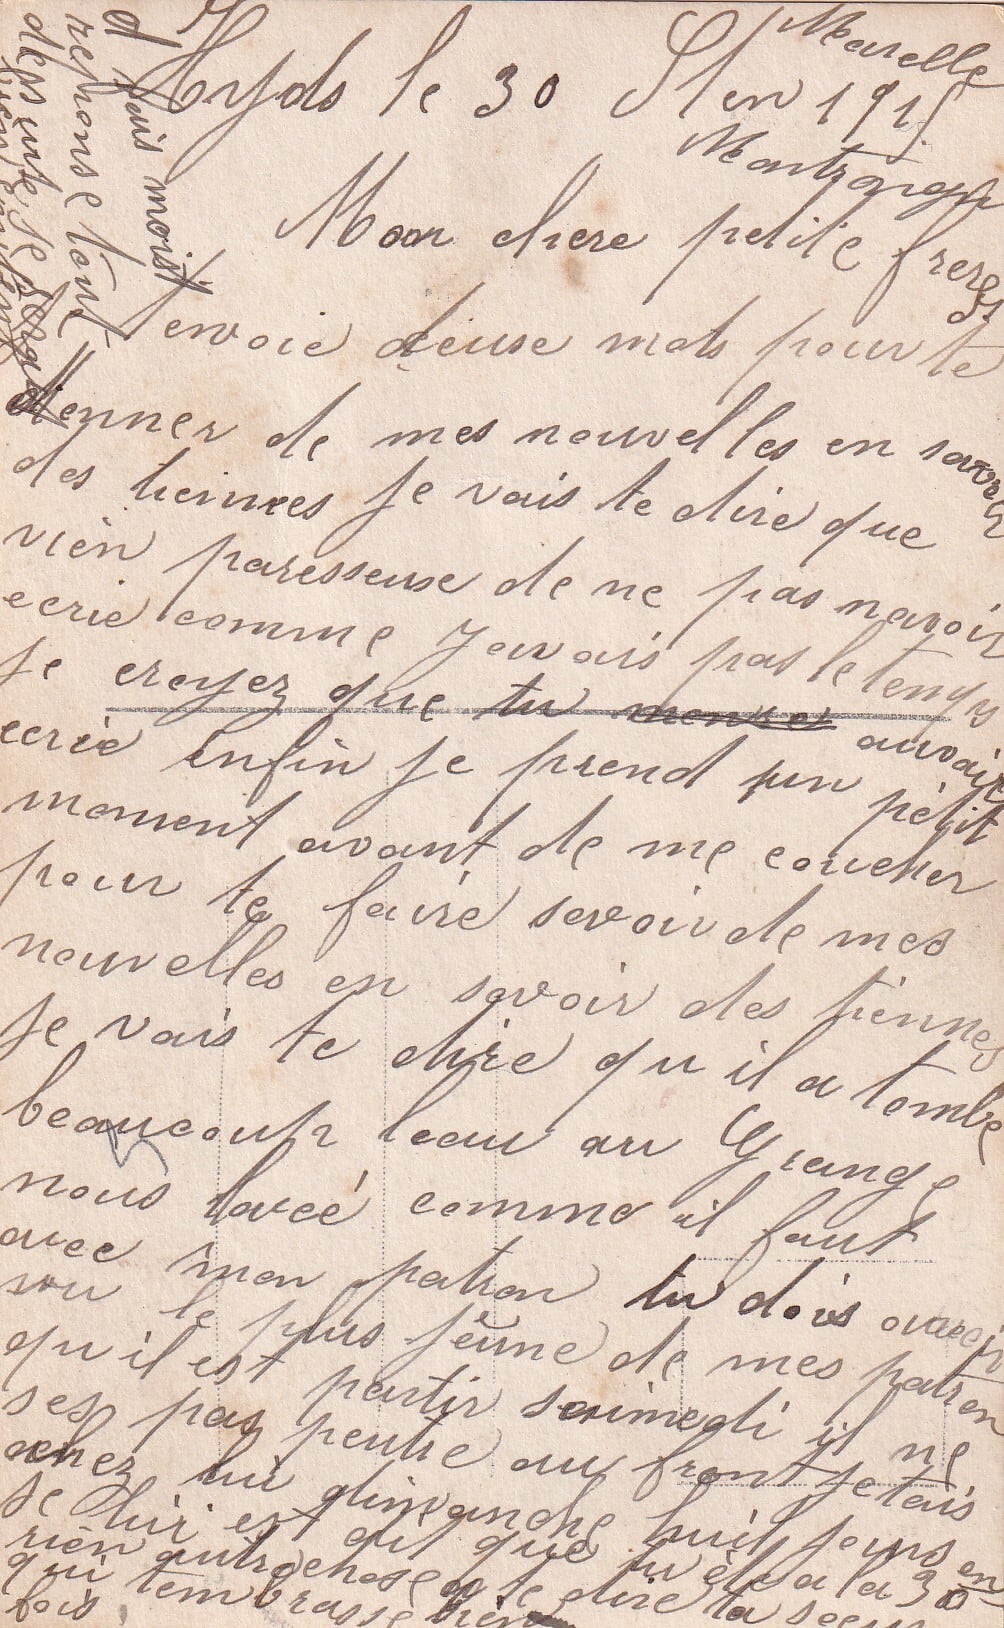 Hyds le 30 1915
Marcelle
Mon chere petite frere
Je
t'envoie deuse mots pour te
donner de mes nouvelles en savoir
des tiennes je vais te dire que
vien paresseuse de ne pas navoir
ecrie comme javais pas le temps
je croyez que tu auvoire
ecrie enfin je prend un petit
moment avant de me coucher
pour te faire savoir de mes
nouvelles en savoir des tiennes
je vais te dire qu il a tombé
beaucoup leau au Grange
nous laveé comme il faut
avec mon patron tu dois avoir
vu le plus jeune de mes patron
qu il est partir saimedi il ne
ses pas peutre au front jetais
chez lui dimanche huit jours
je lui est dit que tu éte a la 30
rien autrechose a te dire ta soeur
qui tembrasse bien
fois
reponse tout